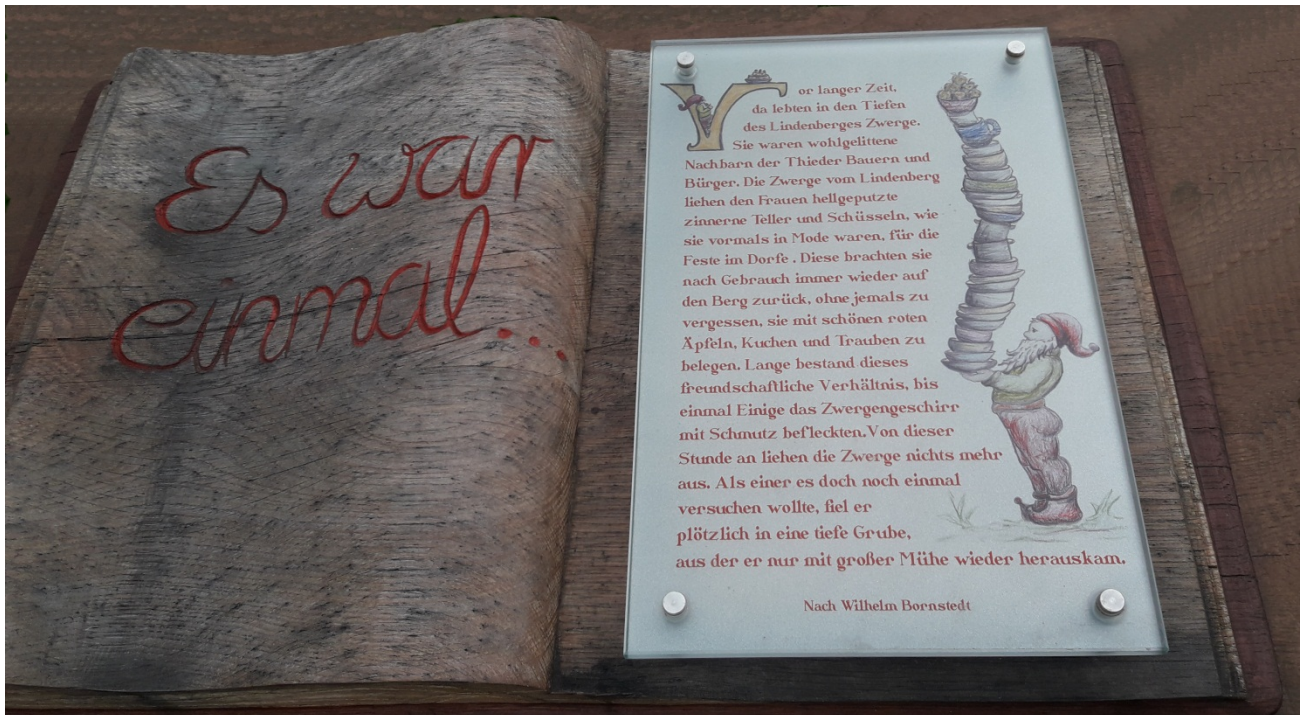 Es war
einmal...
Vor langer Zeit,
da lebten in den Tiefen
des Lindenberges Zwerge.
Sie waren wohlgelittene
Nachbarn der Thieder Bauern und
Bürger. Die Zwerge vom Lindenberg
liehen den Frauen hellgeputzte
zinnerne Teller und Schüsseln, wie
sie vormals in Mode waren, für die
Feste im Dorfe . Diese brachten sie
nach Gebrauch immer wieder auf
den Berg zurück, ohne jemals zu
vergessen, sie mit schönen roten
Äpfeln, Kuchen und Trauben zu
belegen. Lange bestand dieses
freundschaftliche Verhältnis, bis
einmal Einige das Zwergengeschirr
mit Schmutz befleckten.Von dieser
Stunde an liehen die Zwerge nichts mehr
aus. Als einer es doch noch einmal
versuchen wollte, fiel er
plötzlich in eine tiefe Grube,
aus der er nur mit großer Mühe wieder herauskam.
Nach Wilhelm Bornstedt